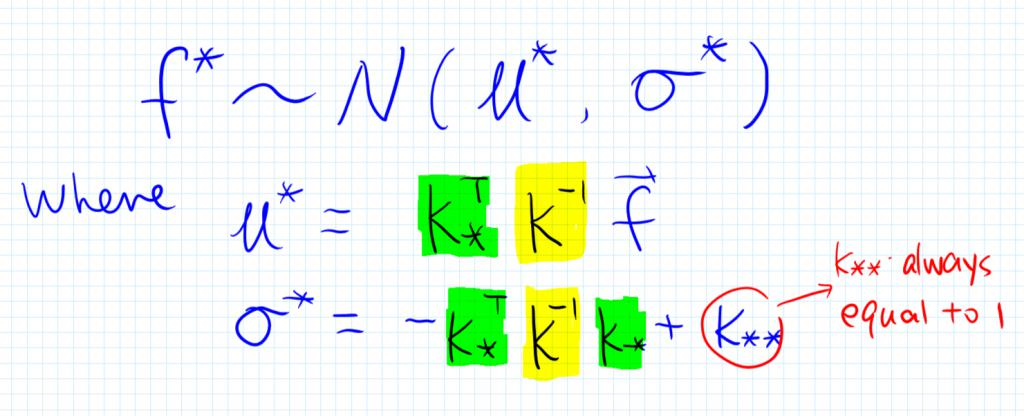 f* ~ N(μ*, σ*)
where μ* = K*ᵀ K⁻¹ f⃗
σ* = -K*ᵀ K⁻¹ K* + K**
K** always
equal to 1